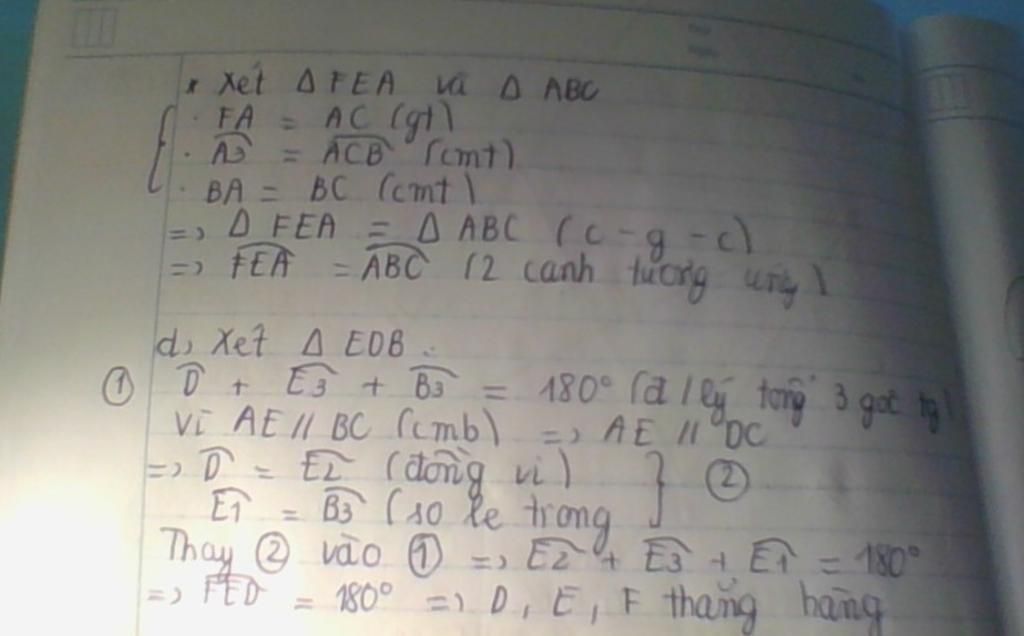 * Xét Δ FEA và Δ ABC
. FA = AC (gt)
. A3 = ACB (cmt)
. BA = BC (cmt)
=> Δ FEA = Δ ABC (c - g - c)
=> FEA = ABC (2 cạnh tương ứng)
d, Xét Δ EDB :
① D + E3 + B3 = 180° (đ/lý tổng 3 góc tg)
Vì AE // BC (cmb) => AE // DC
=> D = E2 (đồng vị) } ②
E1 = B3 (so le trong
Thay ② vào ① => E2 + E3 + E1 = 180°
=> FED = 180° => D, E, F thẳng hàng